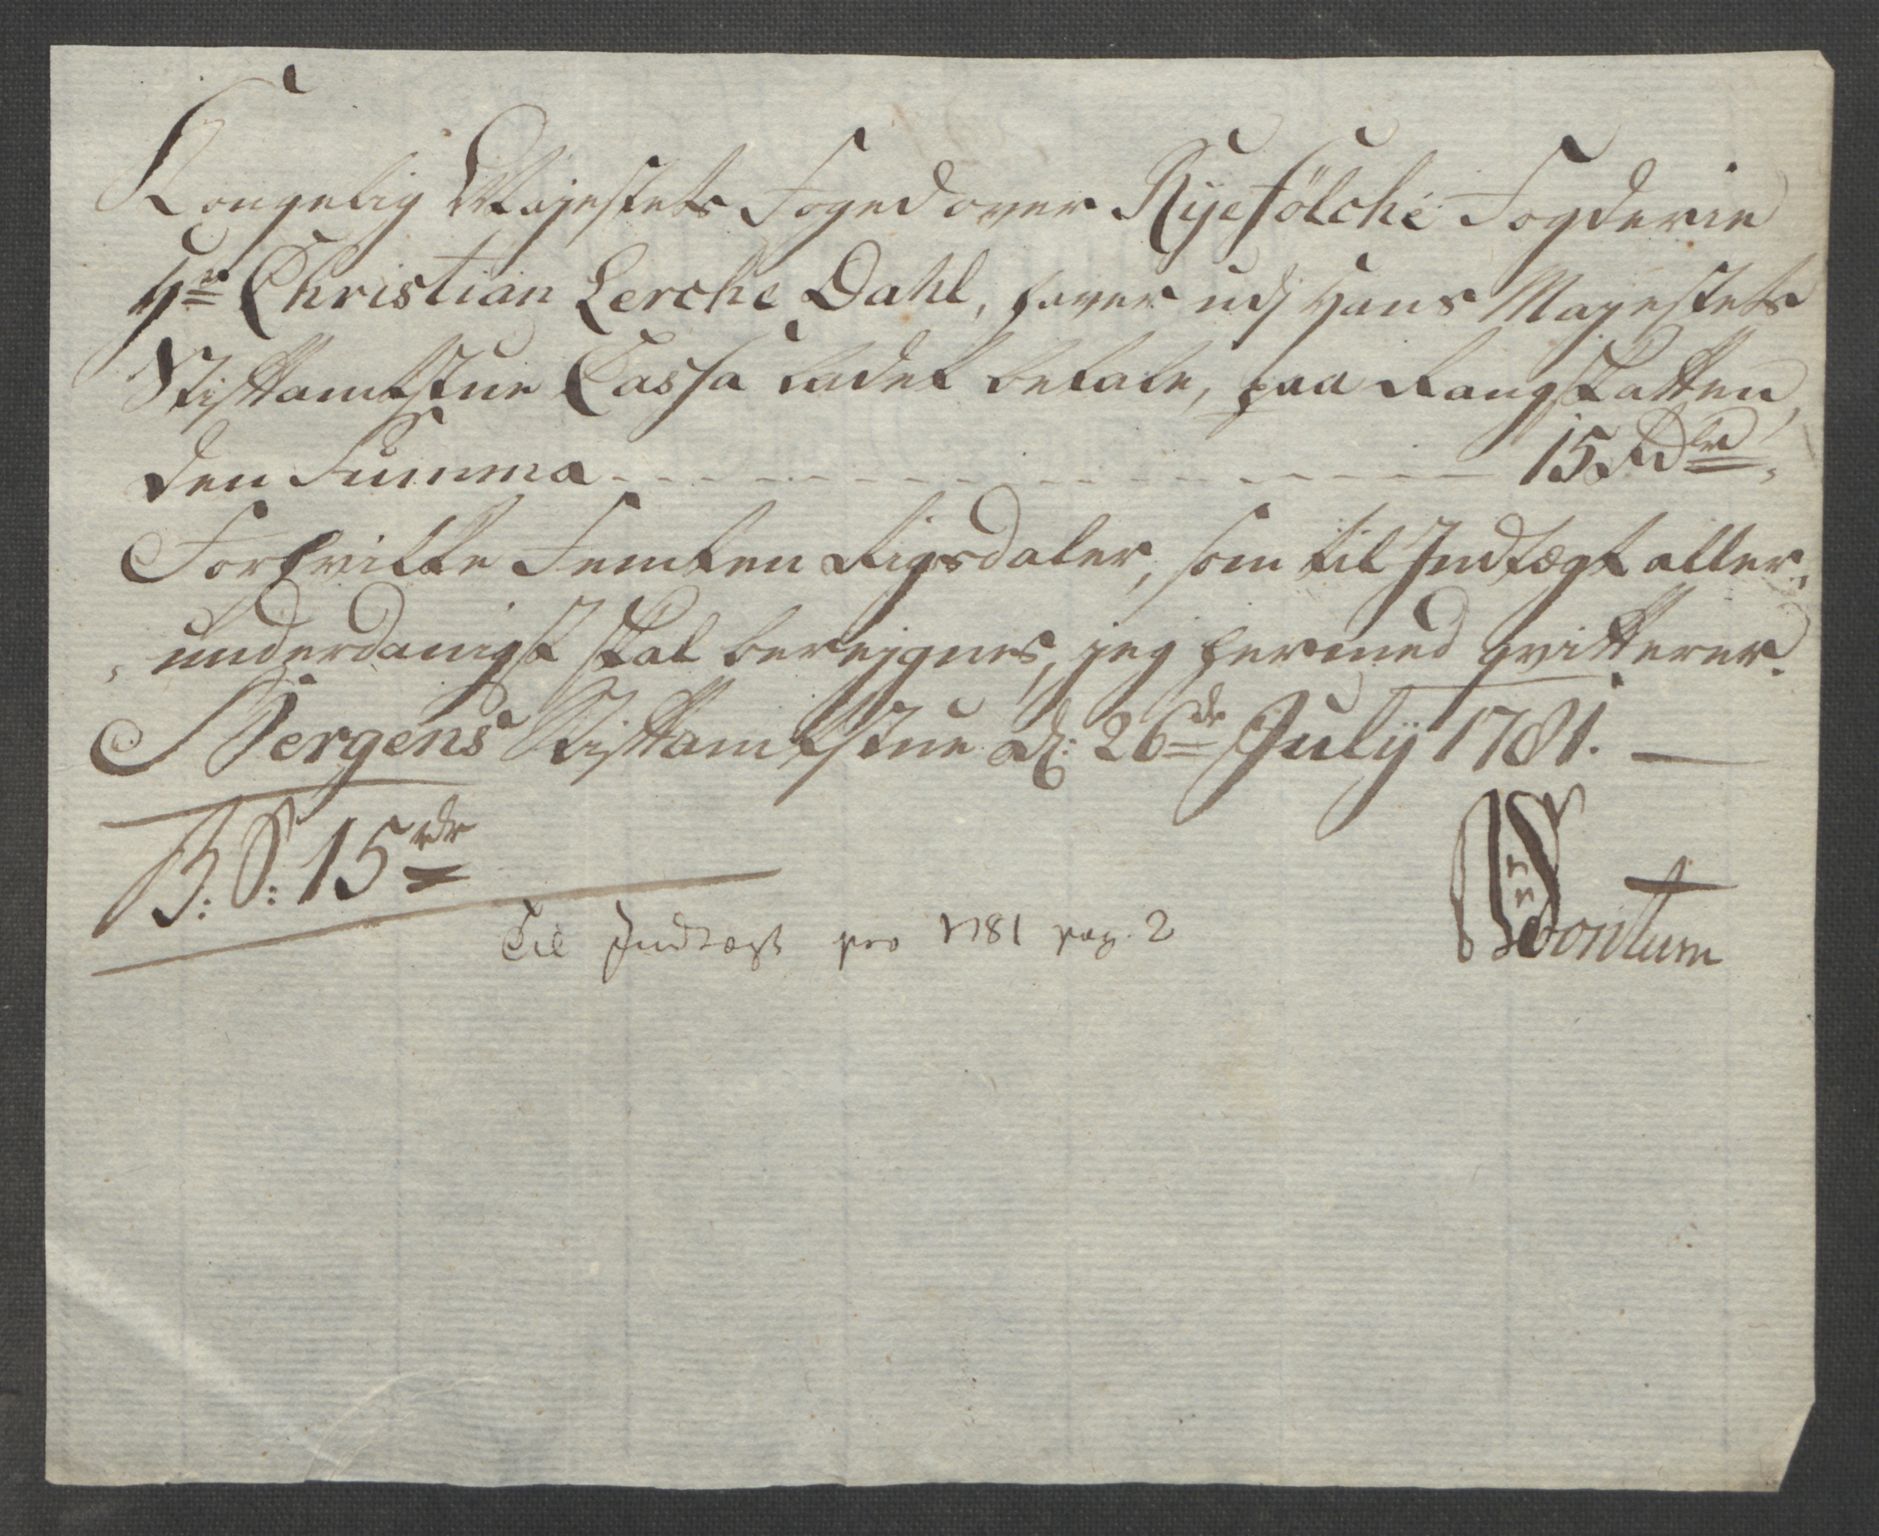 Kongelig Mayestets Foged over Ryefölche Fogderie
Hr Christian Lerche Dahl, haver udj Hans Mayestets
Stiftamtstue Cassa ladet betale, paa Rangskatten,
den Summa - - - - - - - - - - - - 15 Rdlr,
Forskrifte Femten Rigsdaler, som til Indtægt aller-
underdanigst skal bereignes, jeg hermed qvitterer.
Bergens Stiftamtstue d: 26de July 1781.
B: S: 15 rdr
Til Indtægt pro 1781 pag. 2